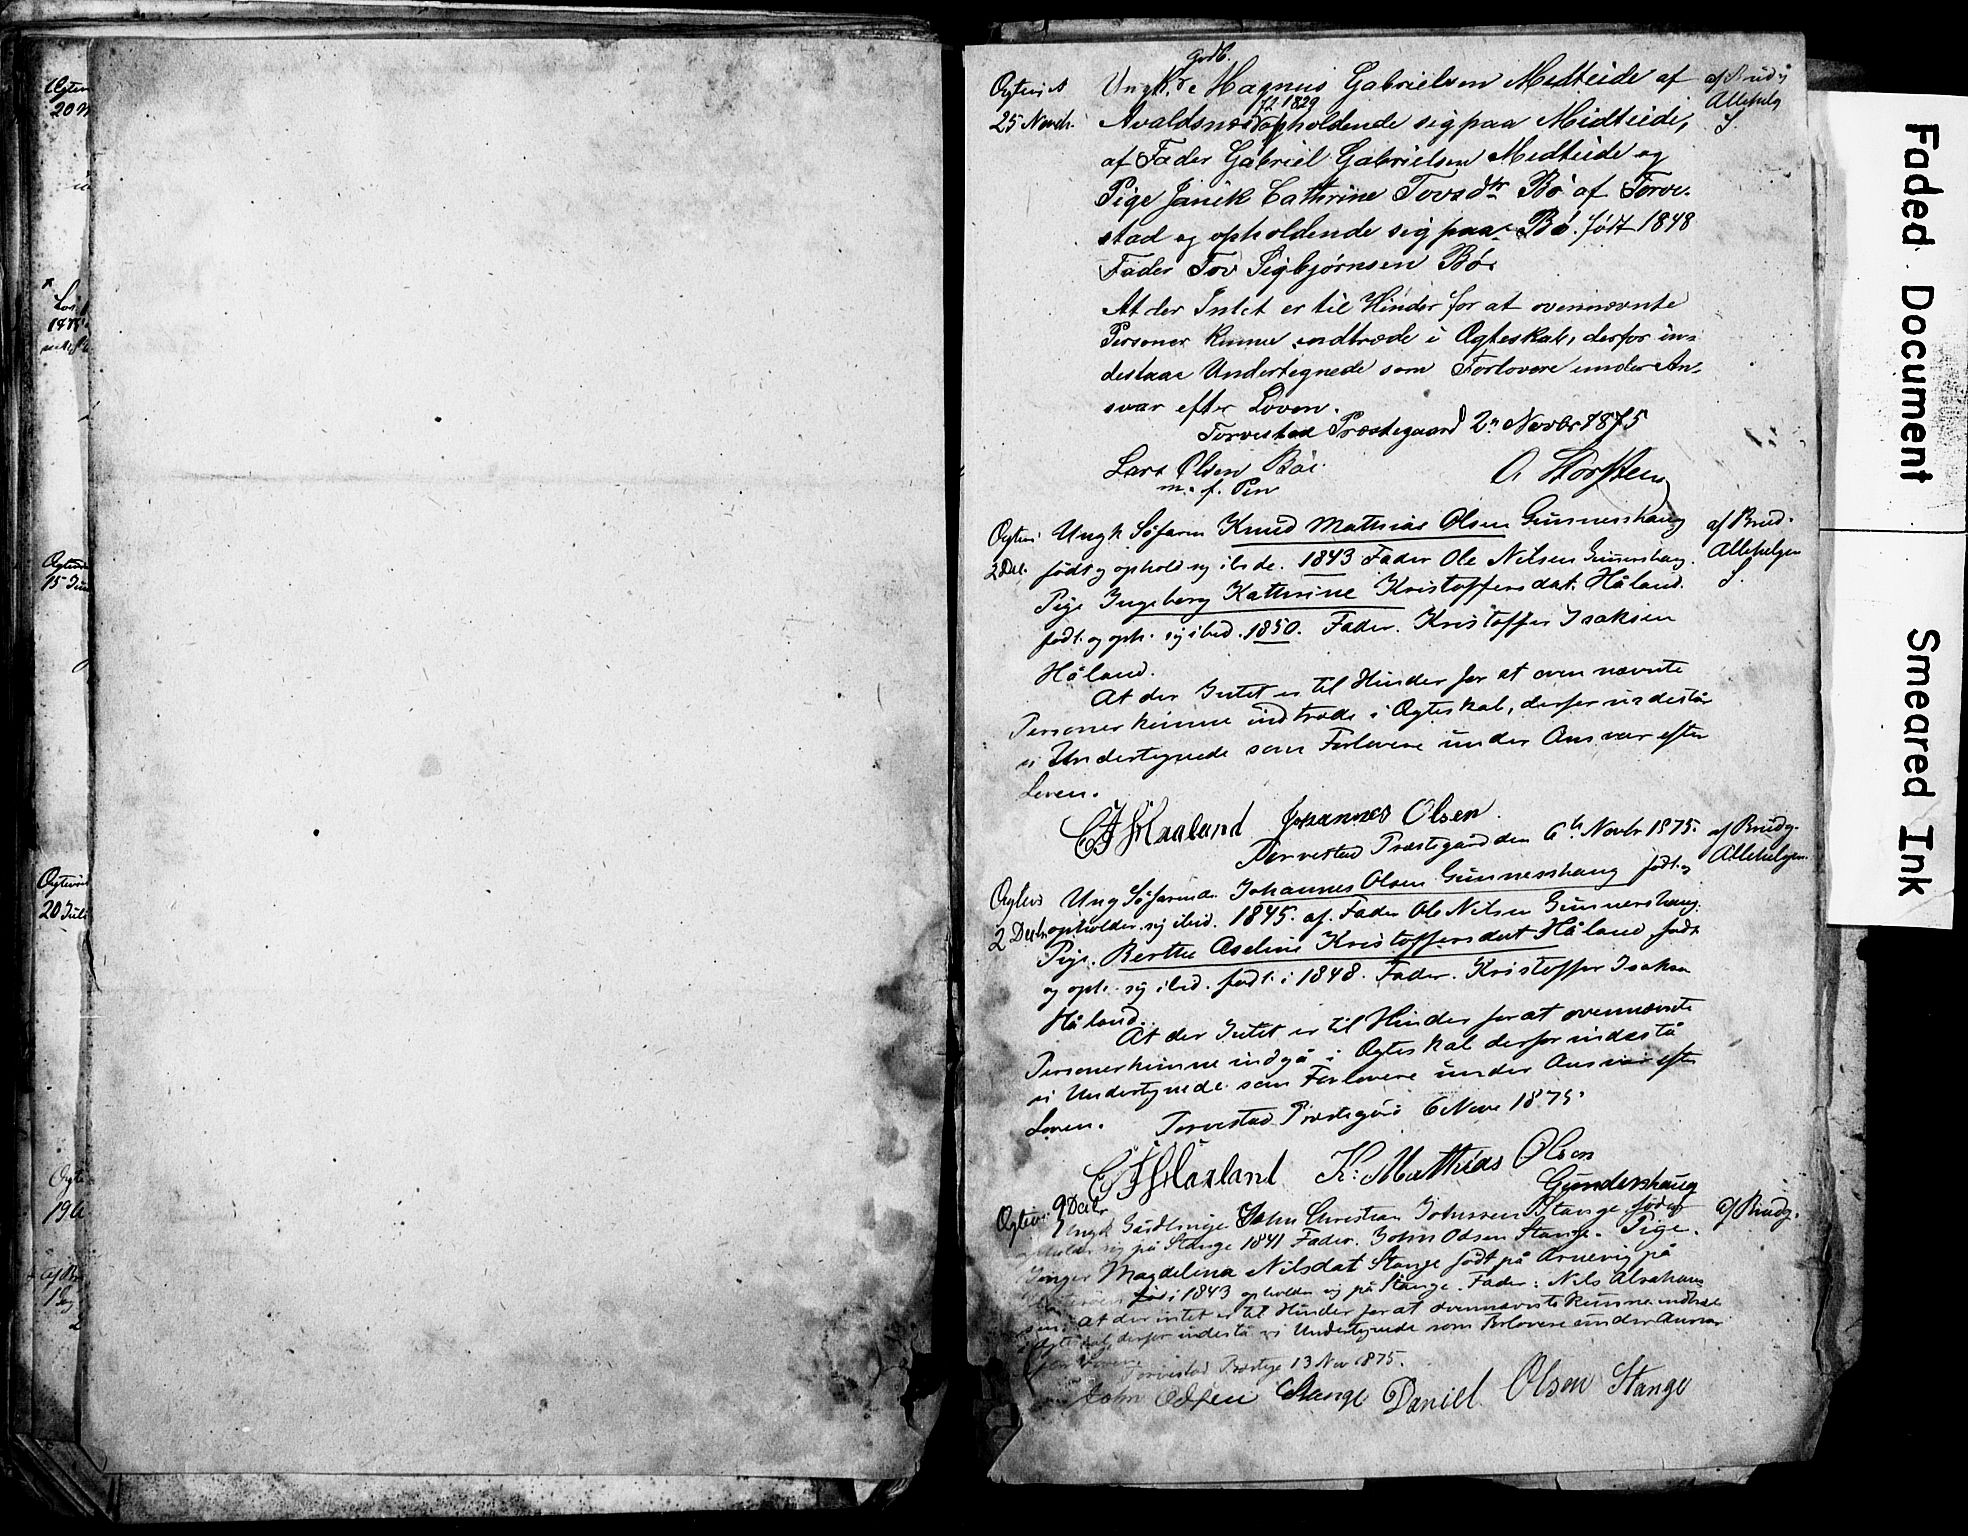 Ægtev
20
1875
Ægtev
15 Juni
Ægtevi
20 Juli
Ægte
19
Ægtevi
25 Novbr.
Ungk. Magnus Gabrielsen Medteide af
Avaldsnæs f. 1829 opholdende sig paa Midteide,
af Fader Gabriel Gabrielsen Medteide og
Pige Janik Cathrine Tovsdtr Bö af Torve-
stad og opholdende sig paa Bö. født 1848
Fader Tov Sigbjørnsen Bö.
At der Intet er til Hinder for at ovennævnte
Personer kunne indtræde i Ægteskab, derfor in-
destaae Undertegnede som Forlovere under An-
svar efter Loven.
Torvestad Præstegaard 2n Novbr 1875
Lars Olsen Böe
m. f. Pen
af Brudg
Allehelg
S.
Ægtevi
2 Dec.
Ungk Söfarm Knud Mathias Olsen Gunnershaug
født og ophold sig ibide. 1843 Fader Ole Nilsen Gunnershaug.
Pige Ingeborg Kathrine Kristoffersdat. Håland.
født. og oph. sig ibid. 1850. Fader. Kristoffer Isaksen
Håland.
At der Intet er til Hinder for at ovennævnte
Personer kunne indtræde i Ægteskab, derfor indestår
vi Undertegnede som Forlovere under Ansvar efter
Loven.
af Brud-
Allehelgen
S.
Haaland Johannes Olsen.
Torvestad Præstegård den 6te Novbr 1875.
af Brudg.
Allehelgen
Ægtev
2 Decb.
Ung Söfarende Johannes Olsen Gunnershaug født og
opholder sig ibid. 1845. af Fader Ole Nilsen Gunnershaug.
Pige. Berthe Aseline Kristoffersdat Håland født
og oph. sig ibid. født i 1848. Fader. Kristoffer Isaksen
Håland.
At der Intet er til Hinder for at ovennævnte
Personer kunne indgå i Ægteskab derfor indestå
vi Undertegnede som Forlovere under Ansvar efter
Loven. Torvestad Præstegård 6 Nove 1875.
Haaland K: Mathias Olsen
Gundershaug
Ægtev. 9 Decbr
Ungk John Christian Johnsen Stange født og
opholder sig på Stange 1841 Fader. John Odsen Stange. Pige.
Inger Magdelina Nilsdat Stange født på Arnevig på
født i 1843 opholder sig på Stange. Fader: Nils Abraham-
sen. At der intet er til Hinder for at ovennævnte kunne indtræde
i Ægteskab derfor indestå vi Undertegnede som Forlovere under Ansvar
efter Loven
Torvestad Præstege 13 Nov 1875.
af Brudg.
John Odsen Stange Daniel Olsen Stange
Faded Document
Smeared Ink